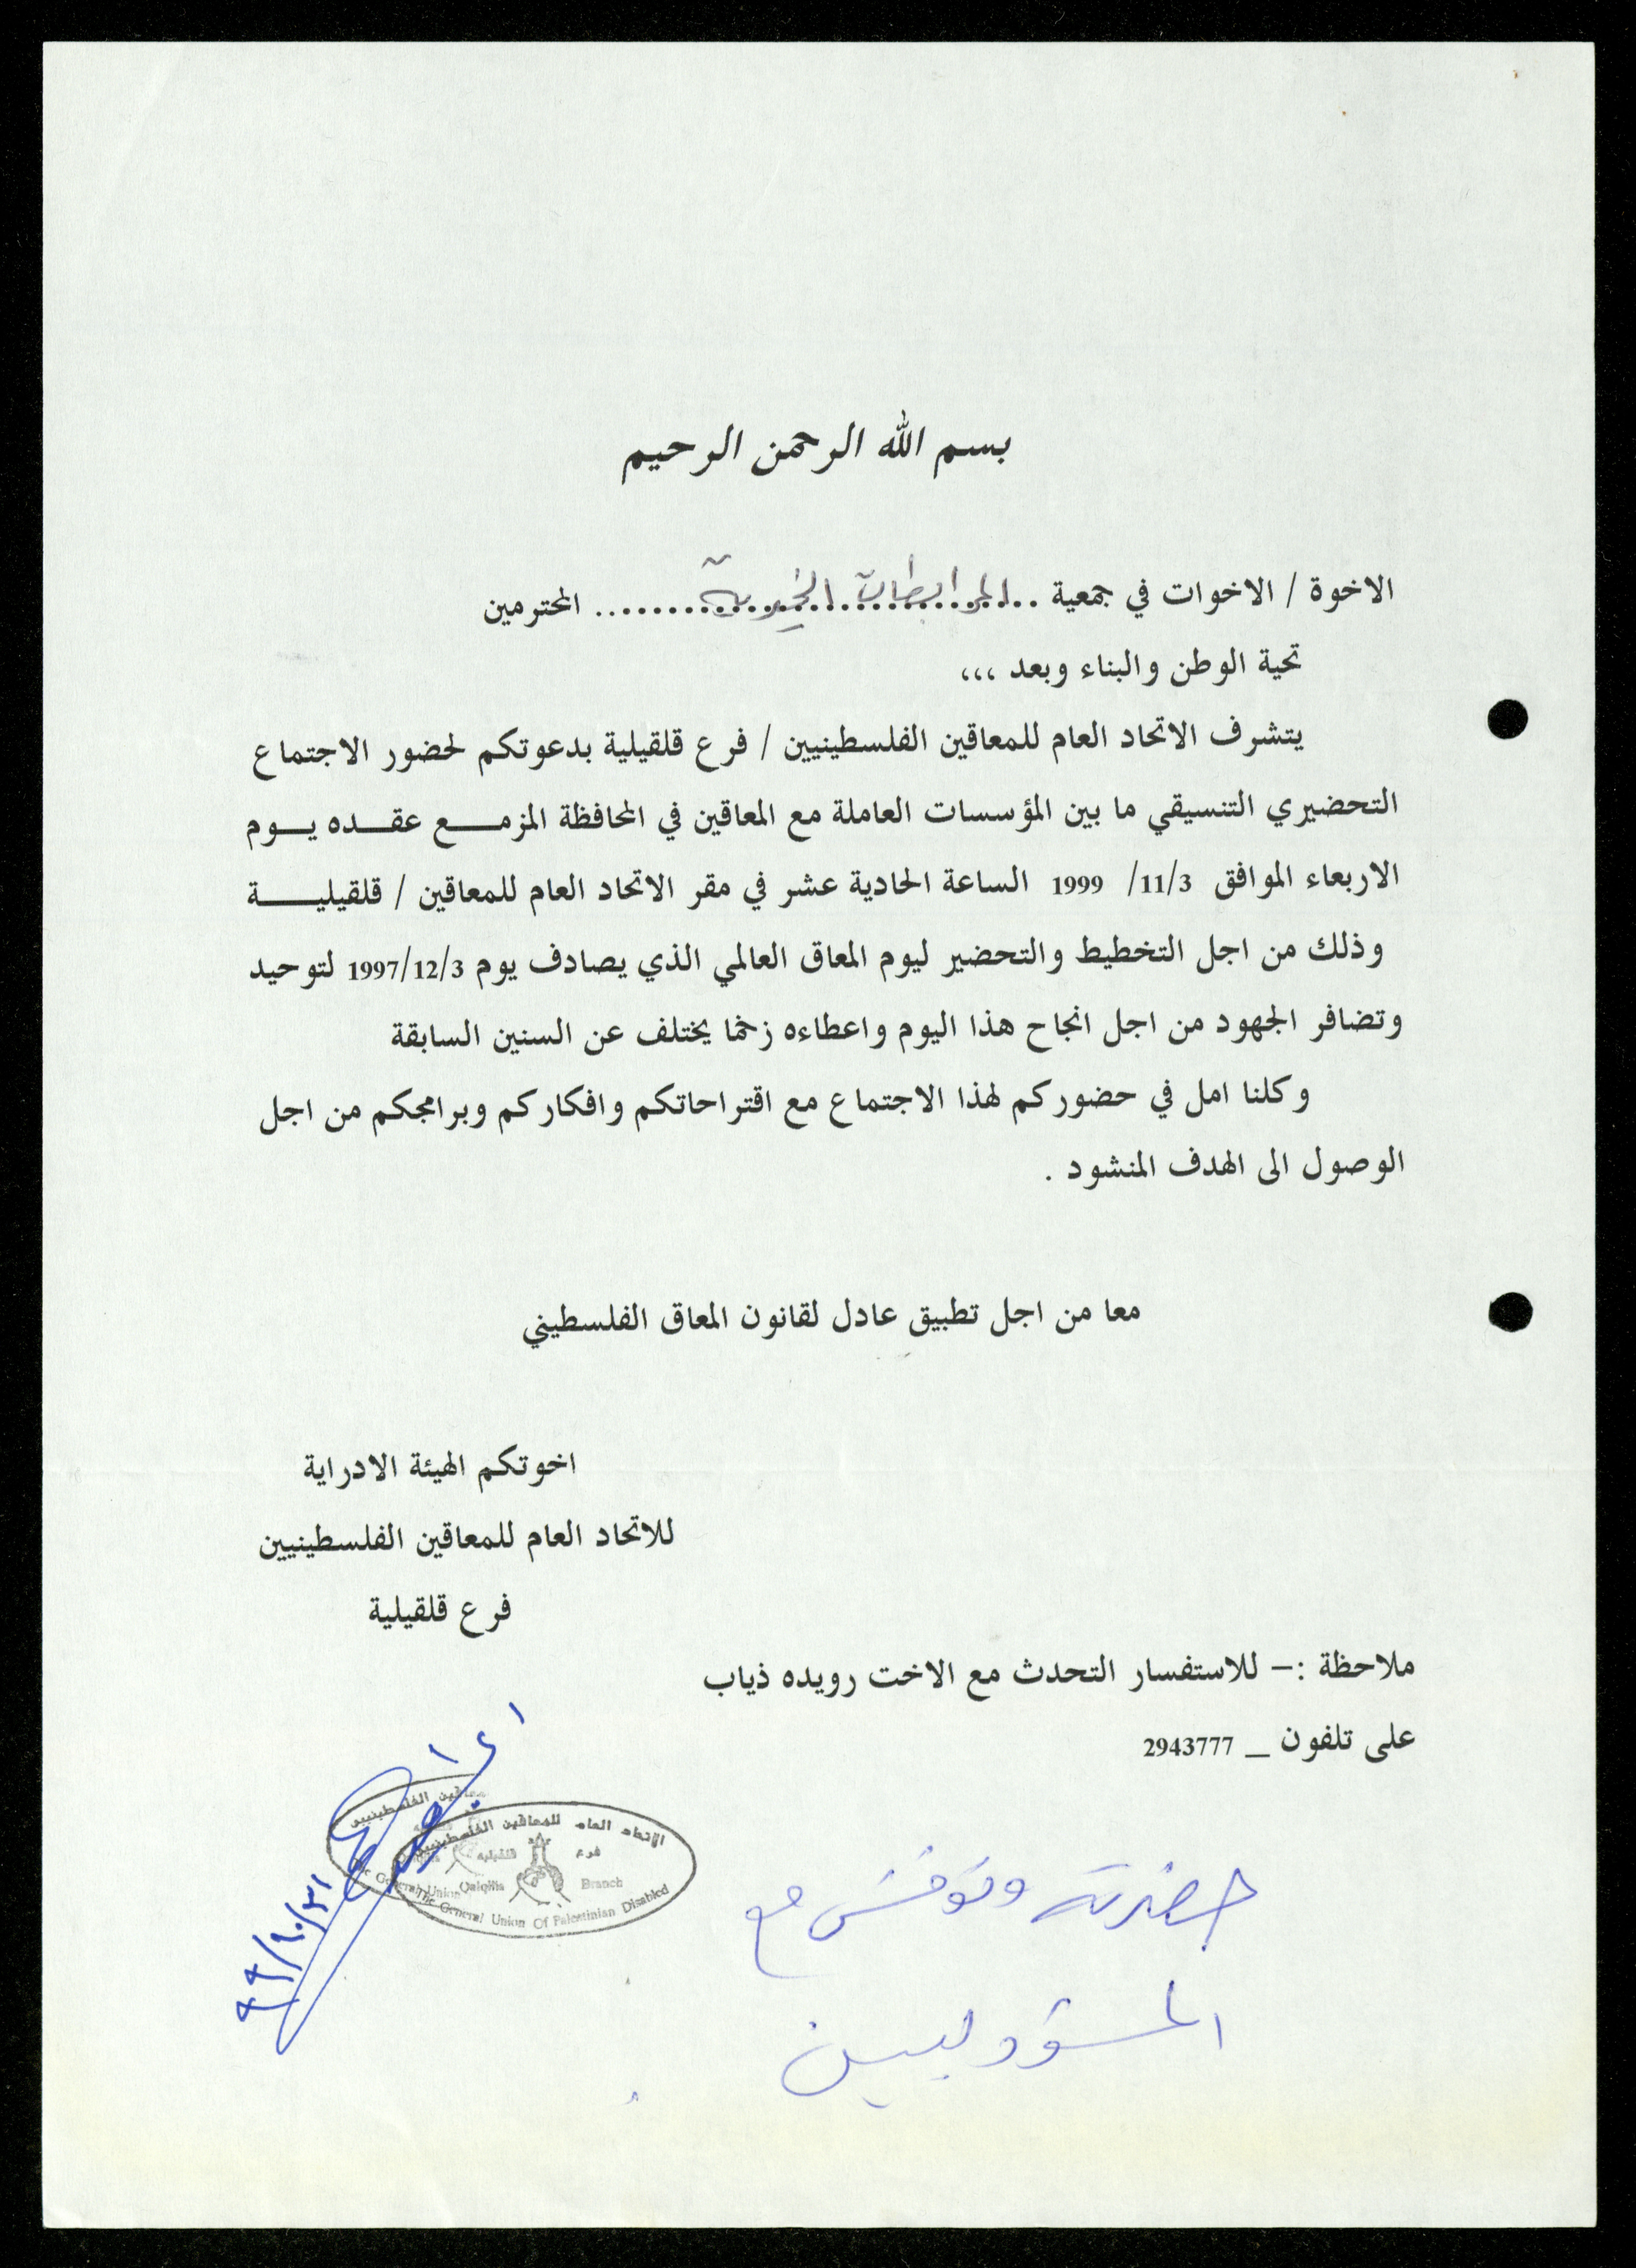 بسم الله الرحمن الرحيم
الاخوة / الاخوات في جمعية ..المرابطات الخيرية...... المحترمين
تحية الوطن والبناء وبعد ،،،
يتشرف الاتحاد العام للمعاقين الفلسطينيين / فرع قلقيلية بدعوتكم لحضور الاجتماع
التحضيري التنسيقي ما بين المؤسسات العاملة مع المعاقين في المحافظة المزمع عقده يوم
الاربعاء الموافق 11/3/ 1999 الساعة الحادية عشر في مقر الاتحاد العام للمعاقين / قلقيلية
وذلك من اجل التخطيط والتحضير ليوم المعاق العالمي الذي يصادف يوم 1997/12/3 لتوحيد
وتضافر الجهود من اجل انجاح هذا اليوم واعطاءه زخما يختلف عن السنين السابقة
وكلنا امل في حضوركم لهذا الاجتماع مع اقتراحاتكم وافكاركم وبرامجكم من اجل
الوصول الى الهدف المنشود .
معا من اجل تطبيق عادل لقانون المعاق الفلسطيني
اخوتكم الهيئة الادراية
للاتحاد العام للمعاقين الفلسطينيين
فرع قلقيلية
ملاحظة :– للاستفسار التحدث مع الاخت رويده ذياب
على تلفون _ 2943777
الإتحاد العام للمعاقين الفلسطينيين
فرع قلقيلية
Qalqilia Branch
The General Union Of Palestinian Disabled
٩٩/١٠/٣١
حضرته ونوقش مع
المسؤوليين